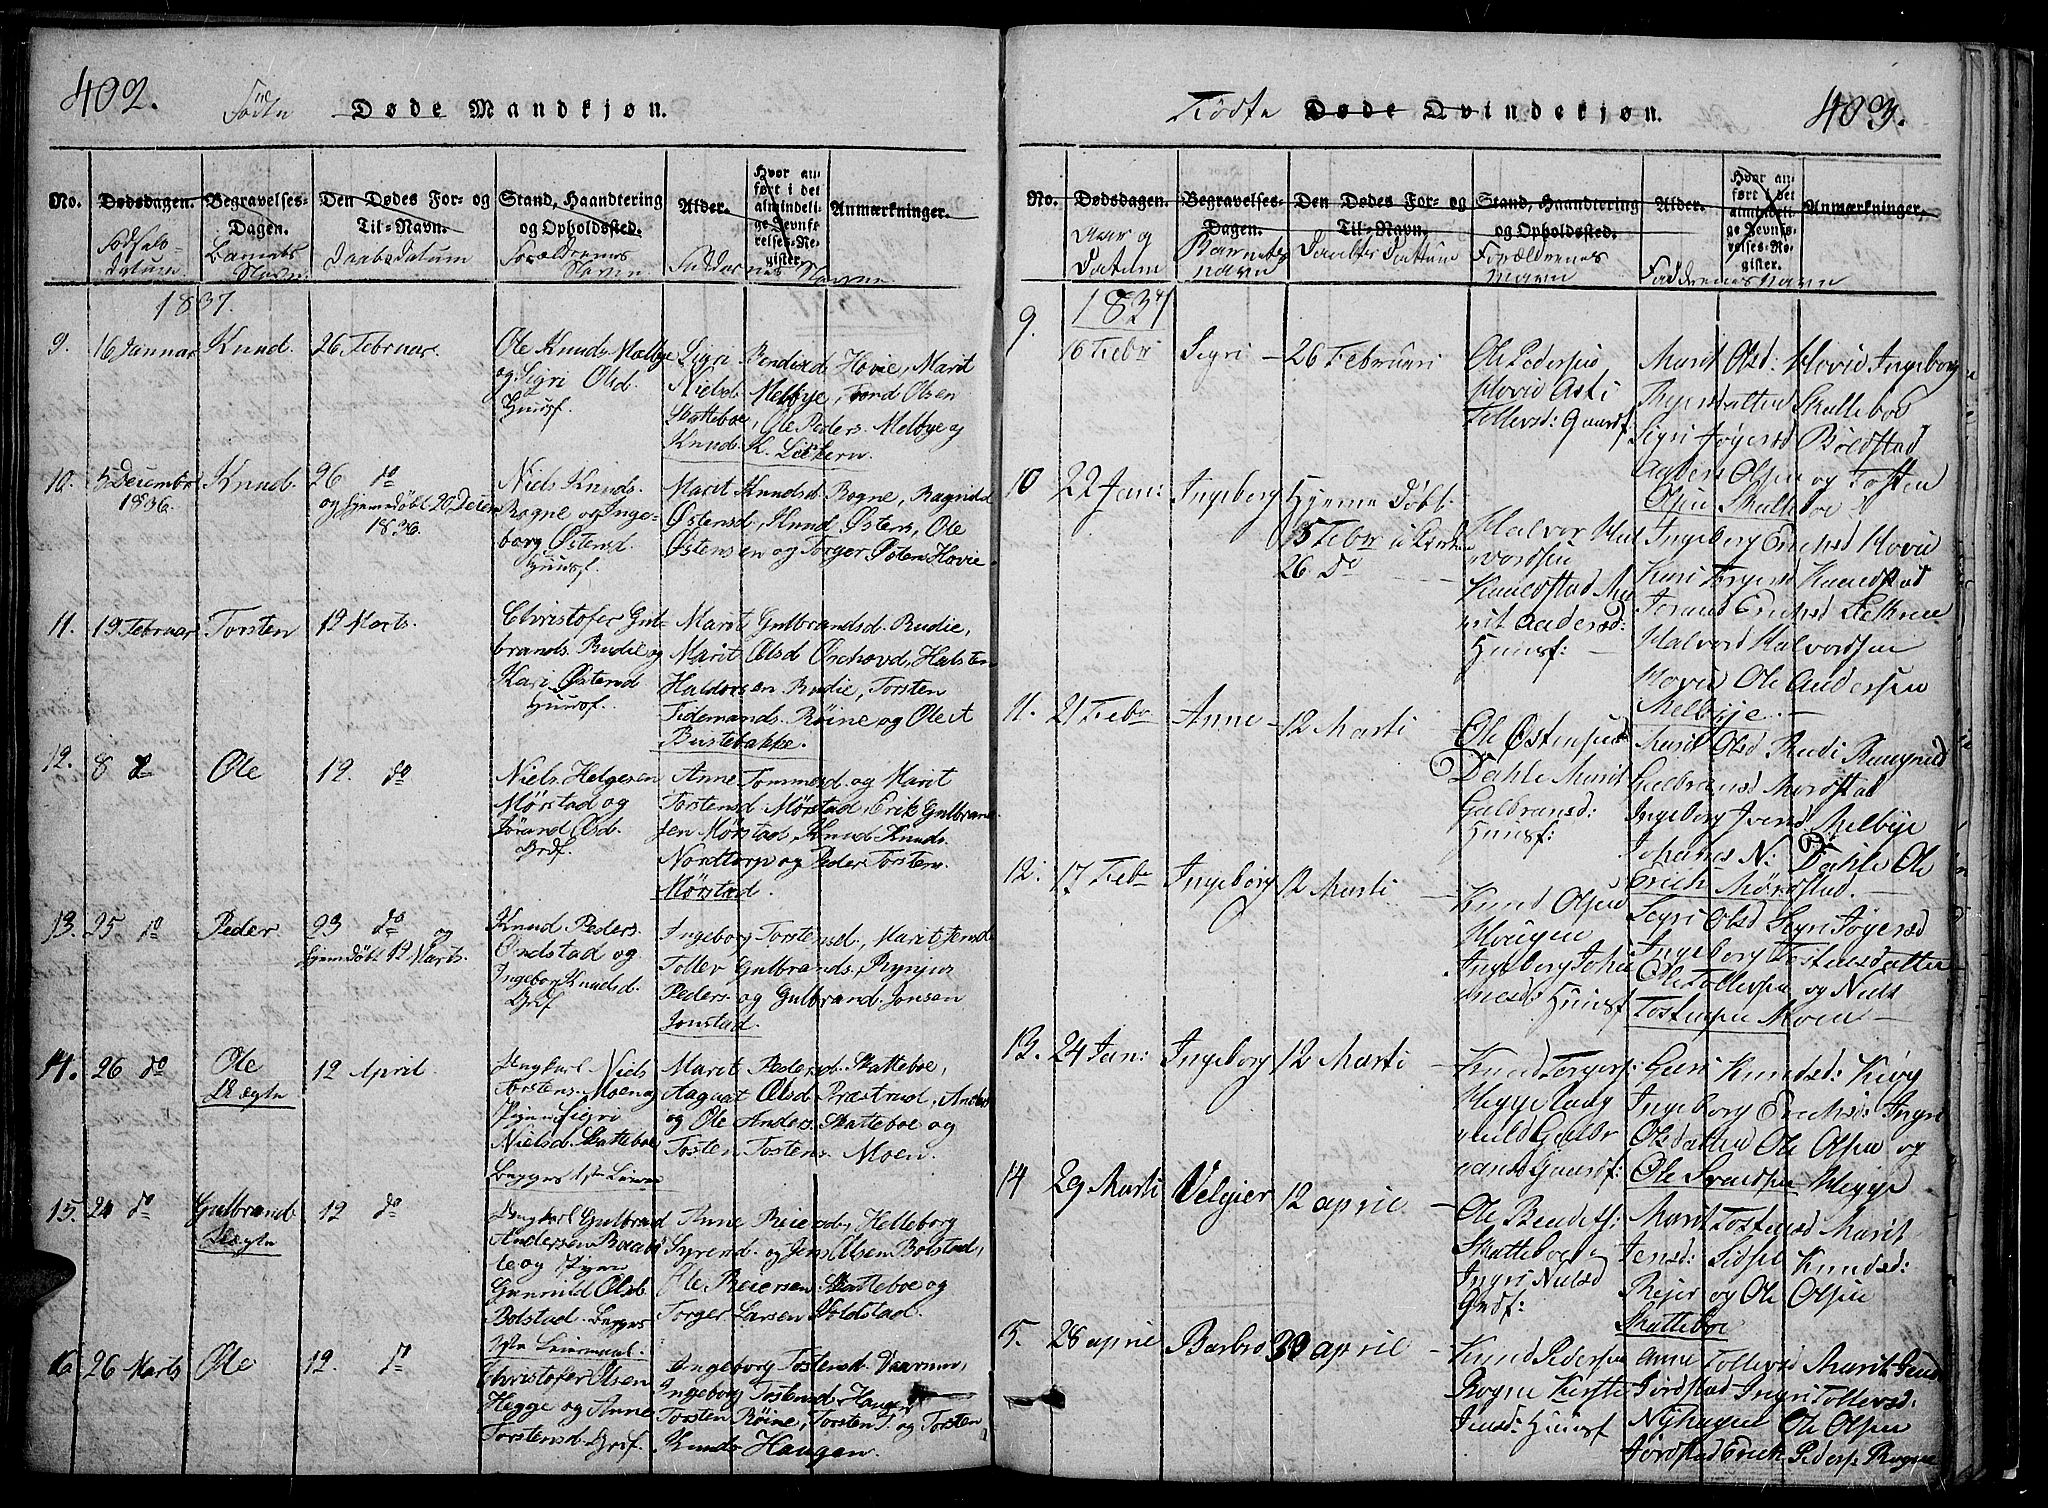 402.
Fødte Døde Mandkjøn.
No. Dødsdagen. Begravelses-Dagen. Den Dødes For- og Til-Navn. Stand, Haandtering og Opholdsted. Alder. Hvor anført i det almindelige Jevnførelses-Register. Anmærkninger.
Fødselsdatum Barnets Navn Daabsdatum Forældrenes Navne Faddernes Navne
1837.
9. 16 Januar Knud. 26 Februar.
Ole Knuds. Melbye
og Sigri Olsd.
Huusf.
Sigri Bendixd. Hovie, Marit
Nielsd. Melbye, Tord Olsen
Skatteboe, Ole Peders. Melbye og
Knud K. Lekern.
10. 5 Decembr 1836. Knud. 26 do
og hjemdøbt 20 Decem 1836.
Niels Knuds.
Rogne og Inge-
borg Østensd.
Huusf.
Marit Knudsd. Rogne, Ragnild
Østensd., Knud Østens, Ole
Østensen og Torger Østens Hovie
11. 19 Februar Torsten 12 Marts.
Christofer Gul-
brands. Rudie og
Kari Østensd
Huusf.
Marit Gulbrandsd. Rudie,
Marit Olsd Ørehovd, Halsten
Haldorsen Rudie, Torsten
Tidemands. Røine og Ole A
Bustebakke.
12. 8 do Ole 12 do
Niels Helgesen
Mørstad og
Jørand Olsd.
Grdf.
Anne Tommesd og Marit
Torstensd. Mørstad, Erik Gulbrand-
sen Mørstad, Knud Knuds.
Nordtorp og Peder Torstens.
Mørstad.
13. 25 do Peder 23 do og
hjemdøbt 12 Marts.
Knud Peders.
Onstad og
Ingebor Knudsd.
Grdf
Ingeborg Torstensd., Marit Jensd
Tollev Gulbrands.
Peders. og Gulbrand Jonsen
Jonstad.
14. 26 do Ole
Uægte
12 April.
Ungkarl Niels
Torstens. Moen og
Pigen Sigri
Nielsd. Skatteboe
Begges 1ste Leierm
Marit Pedersd. Skatteboe,
Aagaat Olsd Præstrud, Anders
og Ole Anders. Skatteboe og
Tosten Tostens Moen.
15. 24 do Gulbrand.
Uægte
12 do
Ungkarl Gulbrand
Andersen
og Pigen
Gunnild Olsd.
Bolstad. Begges
1ste Leiermaal.
Anne Reiersd., Helleborg
Syrensd. og Jens Olsen Bolstad,
Ole Reiersen Skatteboe og
Torger Larsen Woldstad.
16. 26 Marts Ole 12. do
Christofer Olsen
Hegge og Anne
Torstensd. Grdf.
Ingeborg Tostensd.
Ingeborg Tostensd. Haugen
Torsten Røine, Torsten T. og Torsten
Knuds Haugen.
403.
Fødte Døde Qvindekjøn.
No. Dødsdagen. Begravelses-Dagen. Den Dødes For- og Til-Navn. Stand, Haandtering og Opholdsted. Alder. Hvor anført i det almindelige Jevnførelses-Register. Anmærkninger.
Aar og Datum Barnets navn Daabs Dattum Forældrenes navn Faddernes Navn
1837
9. 16 Febr Segri – 26 Februari
Ole Pedersen
Hovid Asti
Tollevsd: Gaardf
Marit Olsd: Hovid Ingeborg
Skattebod
Segri Jøgersd Boldstad
Anders Olsen og Tosten
Olsen Skatteboe
10 22 Jan: Ingeborg Hjemme Døbt
5 Febr i Kirken
26 Do
Halvor Hal
vordsen
Kaaredstad Ma
rit Andersd:
Huusf:
Ingeborg Erichsd Hovid
Kari Torgersd Kaaredstad
Jorand Erichsd Lekren
Halvord Halvordsen
Hovid Ole Andersen
Melbye
11. 21 Febr Anne – 12 Marti
Ole Østensen
Dahle Marit
Gulbransd:
Huusf:
Marit Olsd Rudi Raugnild
Gulbransd Mørdstad
Ingeborg Ivensd Melbye
Johannes N: Dahle Ole
Erich Mørdstad.
12. 17 Febr Ingeborg 12 Marti
Knud Olsen
Hougen
Ingeborg Joha
nnesd: Huusf
Segri Olsd Segri Jøgersd
Ingeborg Tostensdatter
Ole Tollefsen og Niels
Tostensen Moen
13. 24 Jan: Ingeborg 12 Marti
Knud Torgers:
Hegge Rag
nild Gulbr
ansd Gaardf:
Guri Knudsd:
Ingeborg Erichsd: Ingri
Olsdatter Ole Olsen og
Ole Svendsen Hegge
14 29 Marti Velgier 12 aprie
Ole Bendts:
Skatteboe og
Ingri Nielsd
Grdf:
Marit Tostensd Marit
Jensd: Sidsel Knudsd:
Rejer og Ole Olsen
Skatteboe
15. 28 aprie Barbro 30 aprie
Knud Pedersen
Rogne Kirsti
Jensd: Huusf
Anne Tollevsd Marit
Jordstad Ingri Tollevsd:
Nyhagen Ole Olsen
Jordstad Erich Peders: Rogne